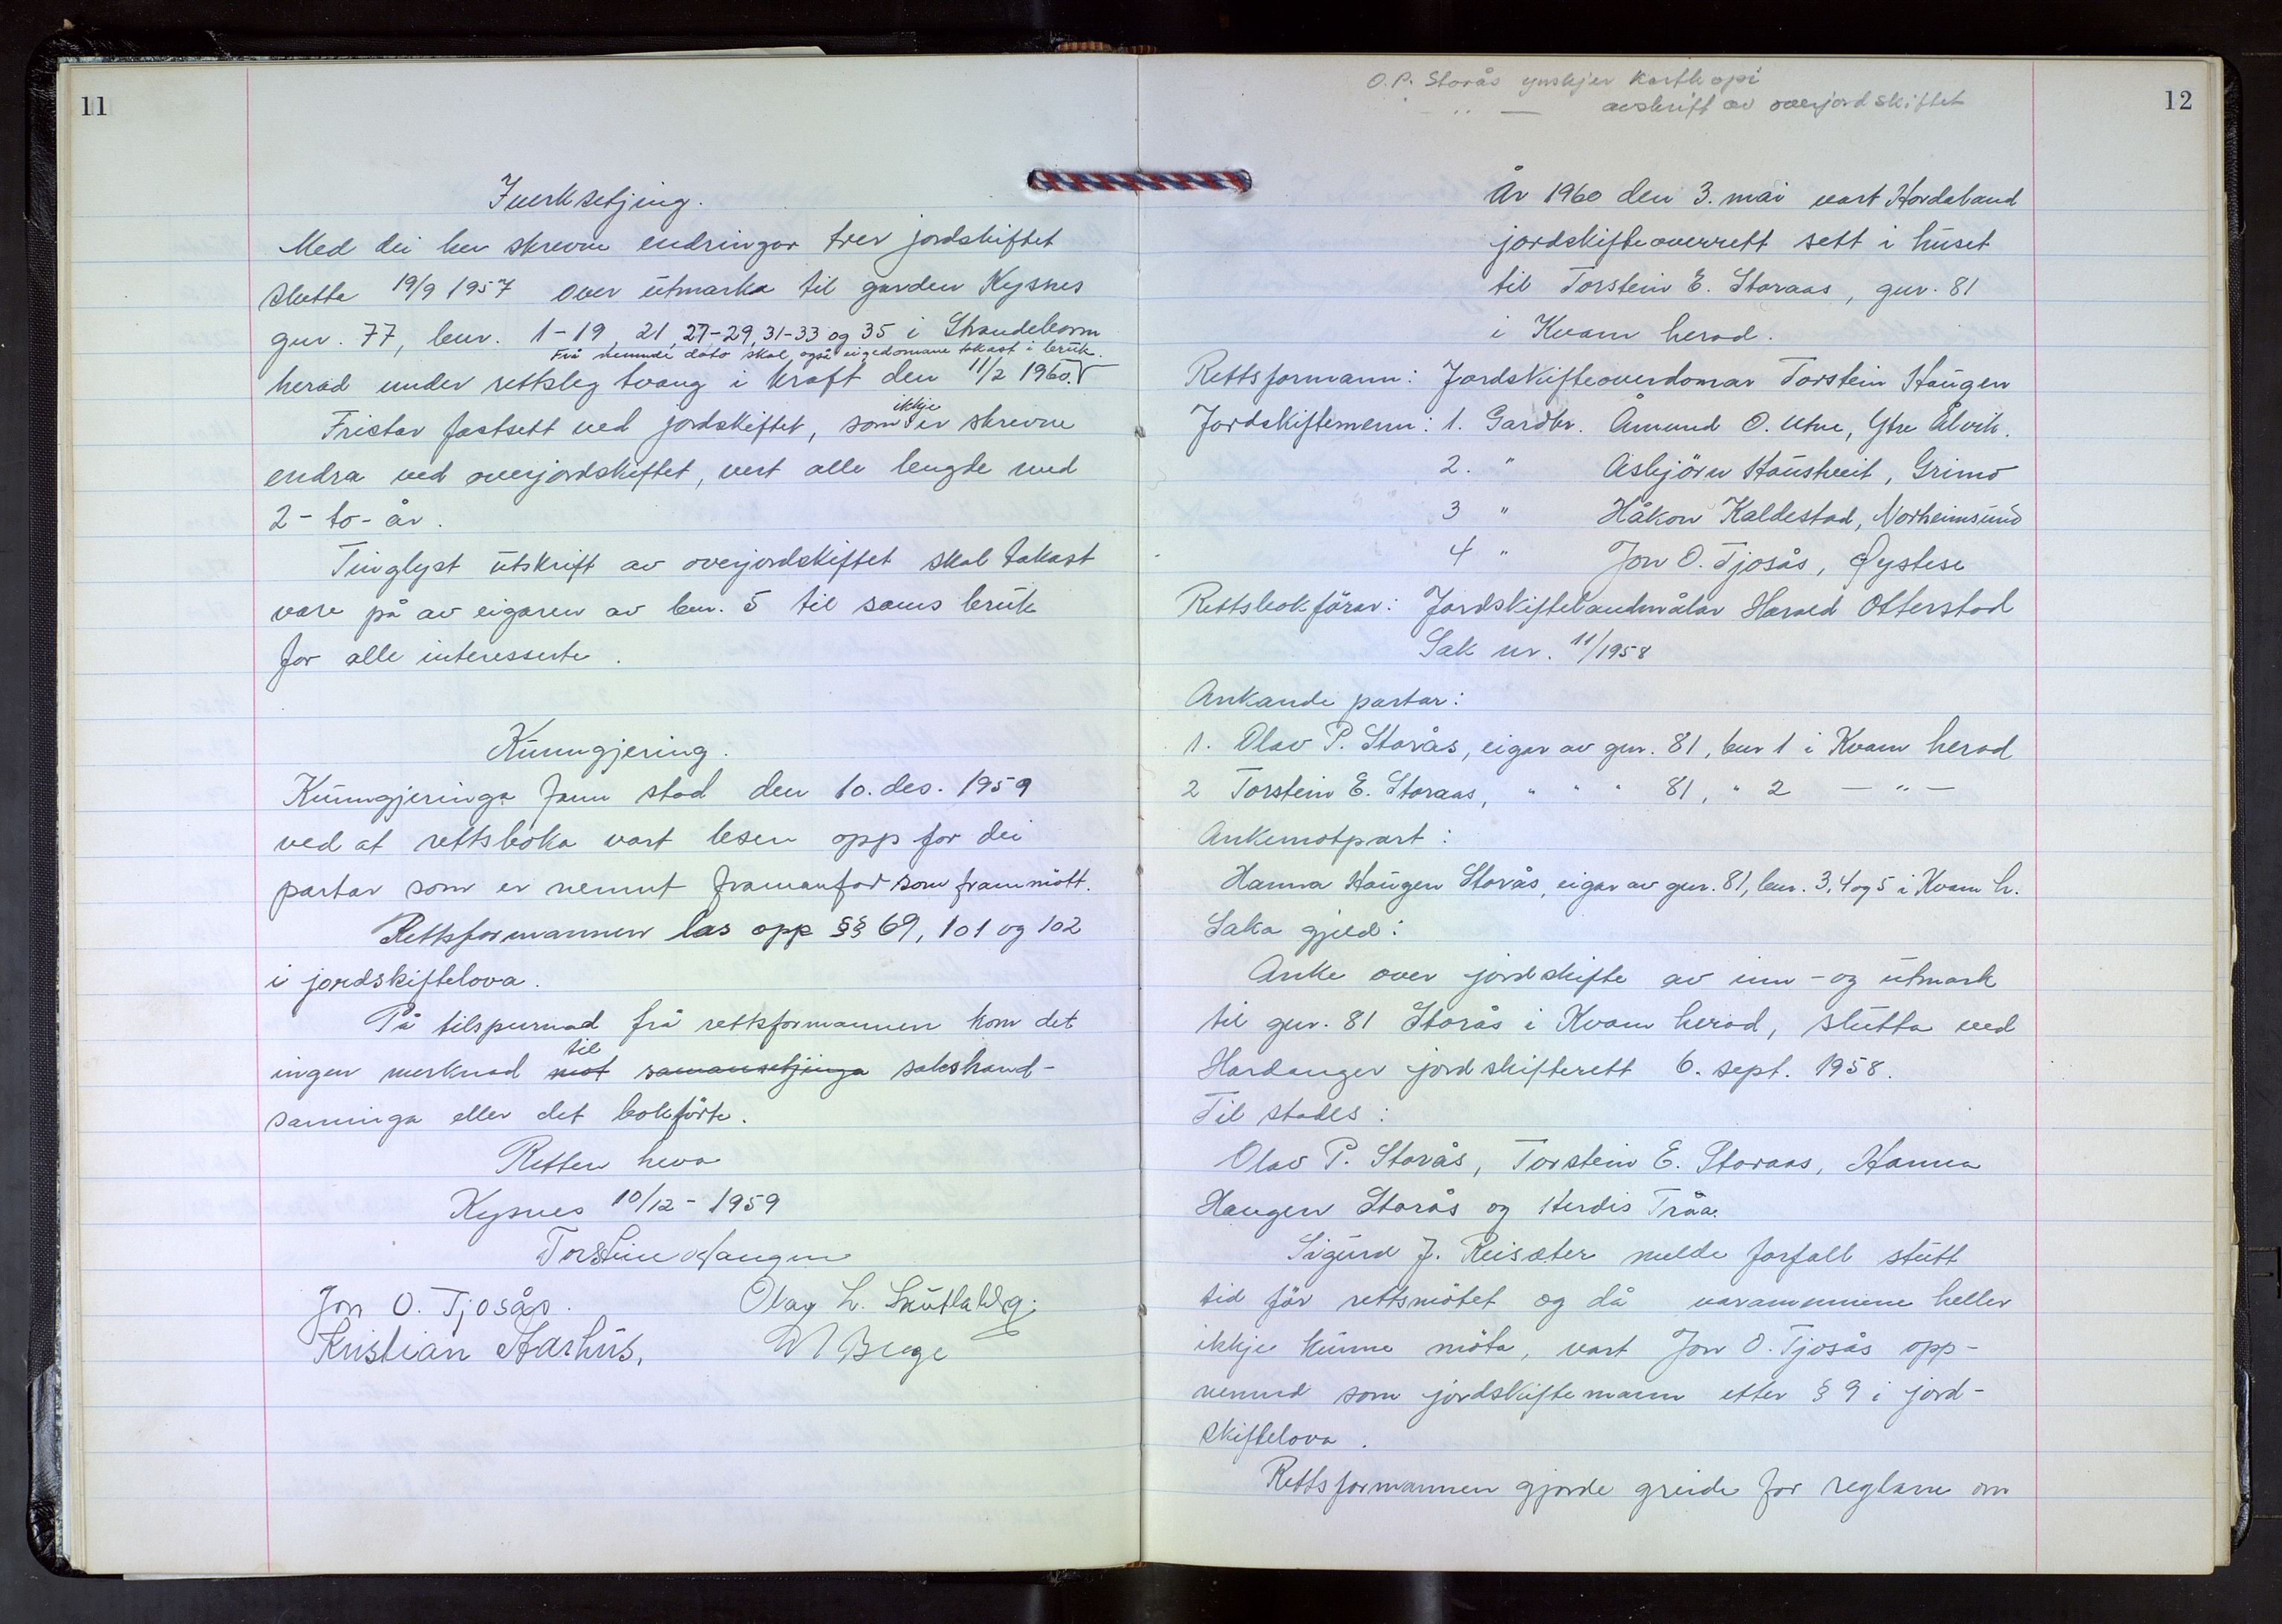 11
Iverksetjing.
Med dei her skrevne endringar trer jordskiftet
slutta 19/9 1957 over utmarka til garden Kysnes
gnr. 77, bnr. 1-19, 21, 27-29, 31-33 og 35 i Strandebarm
Frå nemnde dato skal også eigedomane takast i bruk.
herad under rettsleg tvang i kraft den 11/2 1960. V
ikkje
Fristar fastsett ved jordskiftet, som er skrevne
endra ved overjordskiftet, vert alle lengde med
2- to- år.
Tinglyst utskrift av overjordskiftet skal takast
vare på av eigaren av bnr. 5 til sams bruk
for alle interesserte.
Kunngjering.
Kunngjeringa fann stad den 10. des. 1959
ved at rettsboka vart lesen opp for dei
partar som er nemnt framanfor som frammött.
Rettsformannen las opp §§ 69, 101 og 102
i jordskiftelova.
På tilspurnad frå rettsformannen kom det
til
ingen merknad mot samansetjinga sakshand-
saminga eller det bokförte.
Retten heva
Kysnes 10/12 - 1959
Torstein Haugen
Jon O. Tjosås. Olav L.
Kristian Aarhus,
12
O.P. Storås ynskjer kartkopi
" — avskrift av overjordskiftet
År 1960 den 3. mai vart Hordaland
jordskifteoverrett sett i huset
til Torstein E. Storaas, gnr. 81
i Kvam herad.
Rettsformann: Jordskifteoverdomar Torstein Haugen
Jordskiftemenn: 1. Gardbr. Åmund O. Utne, Ytre Ålvik.
2. " Asbjörn Haustveit, Grimo
3 " Håkon Kaldestad, Norheimsund
4 " Jon O. Tjosås, Öystese
Rettsbokförar: Jordskiftelandmålar Harald Otterstad
Sak nr. 11/1958
Ankande partar:
1. Olav P. Storås, eigar av gnr. 81, bnr 1 i Kvam herad
2 Torstein E. Storaas, " " " 81, " 2 — " —
Ankemotpart:
Hanna Haugen Storås, eigar av gnr. 81, bnr. 3, 4 og 5 i Kvam h.
Saka gjeld:
Anke over jordskifte av inn- og utmark
til gnr. 81 Storås i Kvam herad, slutta ved
Hardanger jordskifterett 6. sept. 1958.
Til stades:
Olav P. Storås, Torstein E. Storaas, Hanna
Haugen Storås og Herdis Tråa.
Sigurd J. Reisæter melde forfall stutt
tid för rettsmötet og då varamennene heller
ikkje kunne möta, vart Jon O. Tjosås opp-
nemnd som jordskiftemann etter § 9 i jord-
skiftelova.
Rettsformannen gjorde greide for reglane om